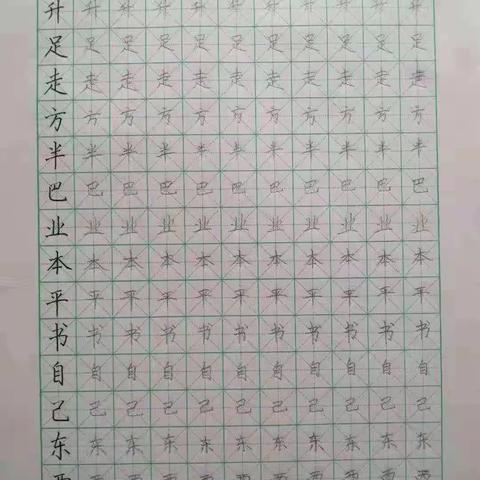 升升升升升升升升升升升
足足足足足足足足足足足
走走走走走走走走走走走
方方方方方方方方方方方
半半半半半半半半半半半
巴巴巴巴巴巴巴巴巴巴巴
业业业业业业业业业业业
本本本本本本本本本本本
平平平平平平平平平平平
书书书书书书书书书书书
自自自自自自自自自自自
己己己己己己己己己己己
东东东东东东东东东东东
西西西西西西西西西西西